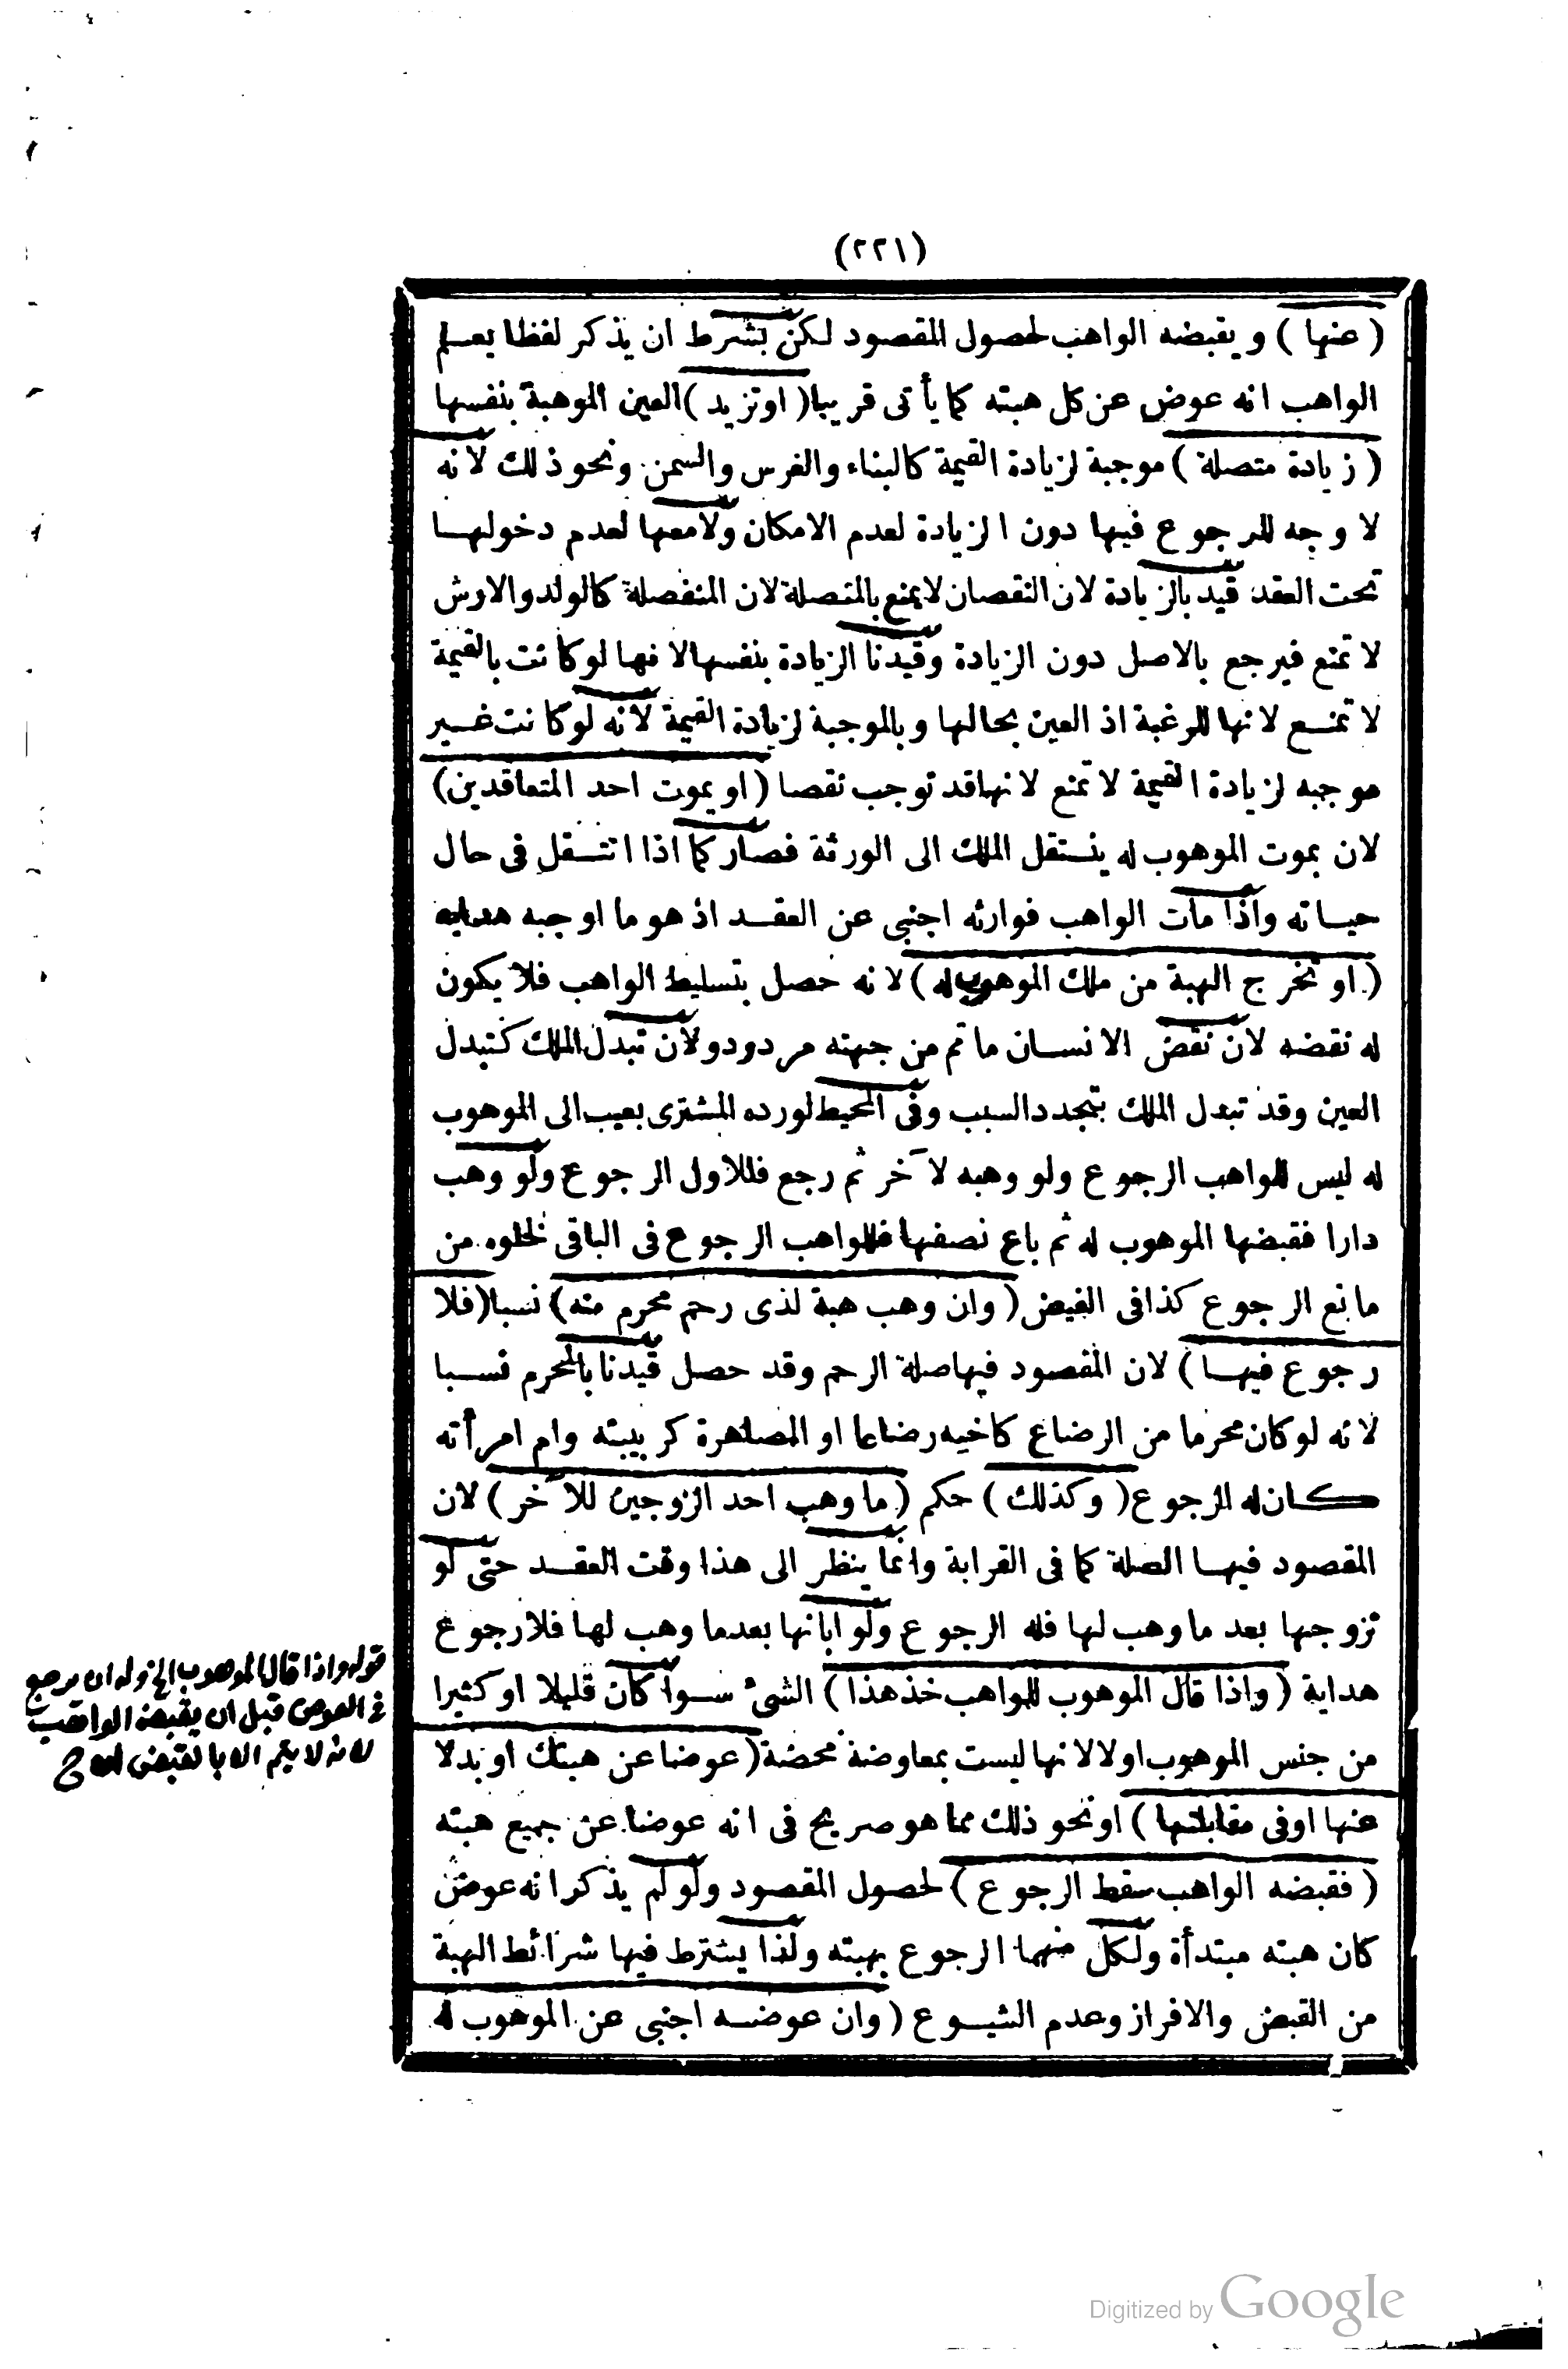 (٢٢١)
( عنها ) ويقبضه الواهب لحصول المقصود لكن بشرط ان يذكر لفظا يعلم
الواهب انه عوض عن كل هبته كما يأتى قريبا ( اوتزيد ) العين الموهبة بنفسها
( زيادة متصلة ) موجبة لزيادة القيمة كالبناء والغرس والسمن ونحو ذلك لانه
لا وجه للرجوع فيها دون الزيادة لعدم الامكان ولامعها لعدم دخولها
تحت العقد قيد بالزيادة لان النقصان لايمنع بالمتصلة لان المنفصلة كالولد والارش
لا تمنع فيرجع بالاصل دون الزيادة وقيدنا الزيادة بنفسها لا نها لو كانت بالقيمة
لا تمنع لانها للرغبة اذ العين بحالها وبالموجبة لزيادة القيمة لانه لو كانت غير
موجبه لزيادة القيمة لا تمنع لانها قد توجب نقصا ( او يموت احد المتعاقدين )
لان بموت الموهوب له ينتقل الملك الى الورثة فصار كما اذا انتقل فى حال
حياته واذا مات الواهب فوارثه اجنبى عن العقد اذ هو ما اوجبه هدايه
( او تخرج الهبة من ملك الموهوب له ) لانه حصل بتسليط الواهب فلا يكون
له نقضه لان نقض الانسان ما تم من جهته مردود ولان تبدل الملك كتبدل
العين وقد تبدل الملك بتجدد السبب وفى المحيط لو رده المشترى بعيب الى الموهوب
له ليس للواهب الرجوع ولو وهبه لآخر ثم رجع فللاول الرجوع ولو وهب
دارا فقبضها الموهوب له ثم باع نصفها فللواهب الرجوع فى الباقى لخلوه من
مانع الرجوع كذافى الفيض ( وان وهب هبة لذى رحم محرم منه ) نسبا ( فلا
رجوع فيها ) لان المقصود فيها صلة الرحم وقد حصل قيدنا بالمحرم نسبا
لانه لو كان محرما من الرضاع كاخيه رضاعا او المصاهرة كربيبته وام امرأته
كان له الرجوع ( وكذلك ) حكم ( ما وهب احد الزوجين للآخر ) لان
المقصود فيها الصلة كما فى القرابة وانما ينظر الى هذا وقت العقد حتى لو
تزوجها بعد ما وهب لها فله الرجوع ولو ابانها بعدما وهب لها فلارجوع
هداية ( واذا قال الموهوب للواهب خذ هذا ) الشئ سواء كان قليلا او كثيرا
من جنس الموهوب اولا لانها ليست بمعاوضة محضة ( عوضا عن هبتك او بدلا
عنها اوفى مقابلتها ) اونحو ذلك مما هو صريح فى انه عوضا عن جميع هبته
( فقبضه الواهب سقط الرجوع ) لحصول المقصود ولو لم يذكر انه عوض
كان هبته مبتدأة ولكل منهما الرجوع بهبته ولذا يشترط فيها شرائط الهبة
من القبض والافراز وعدم الشيوع ( وان عوضه اجنبى عن الموهوب له
قوله واذا قال الموهوب الخ وله ان يرجع
فى العوض قبل ان يقبضه الواهب
لانه لا يتم الا بالقبض
Digitized by Google